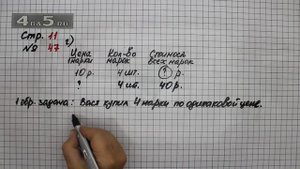 4 на 5.ru
Стр. 11
№ 47 2)
Цена марки Кол-во марок Стоимость всех марок
10 р. 4 шт. ? р.
? 4 шт. 40 р.
1 обр. задача: Вася купил 4 марки по одинаковой цене.